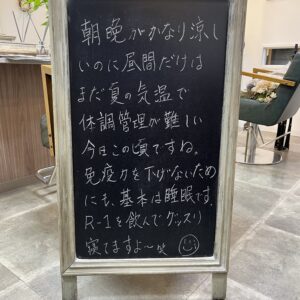 朝晩がかなり涼し
いのに昼間だけは
まだ夏の気温で
体調管理が難しい
今日この頃ですね。
免疫力を下げないため
にも、基本は睡眠です。
R-1を飲んでグッスリ
寝てますよ〜